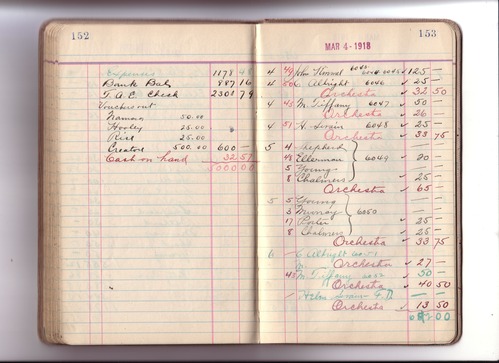 152
Expenses 1178
Bank Bal. 887 16
T.A.C. Check 2301 79
Vouchers out
Naman 50.00
Hooley 25.00
Rice 25.00
Creators 500.00 600 —
Cash on hand 32 57
5000 00
153
MAR 4 - 1918
4 49 John Konrad 125 —
4 50 C. Albright 6046 25 —
Orchestra 32 50
4 45 M. Tiffany 6047 50 —
Orchestra 26 —
4 51 H. Swain 6048 25 —
Orchestra 33 75
5 4 Shepherd
48 Ellerman 6049 20 —
5 Young
8 Chalmers 25 —
Orchestra 65
5 5 Young
3 Murray 6050
17 Porter 25 —
8 Chalmers 25 —
Orchestra 33 75
6 C. Albright 6051
Orchestra 27 —
45 M. Tiffany 6052 50 —
Orchestra 40 50
Helen Swain
Orchestra 13 50